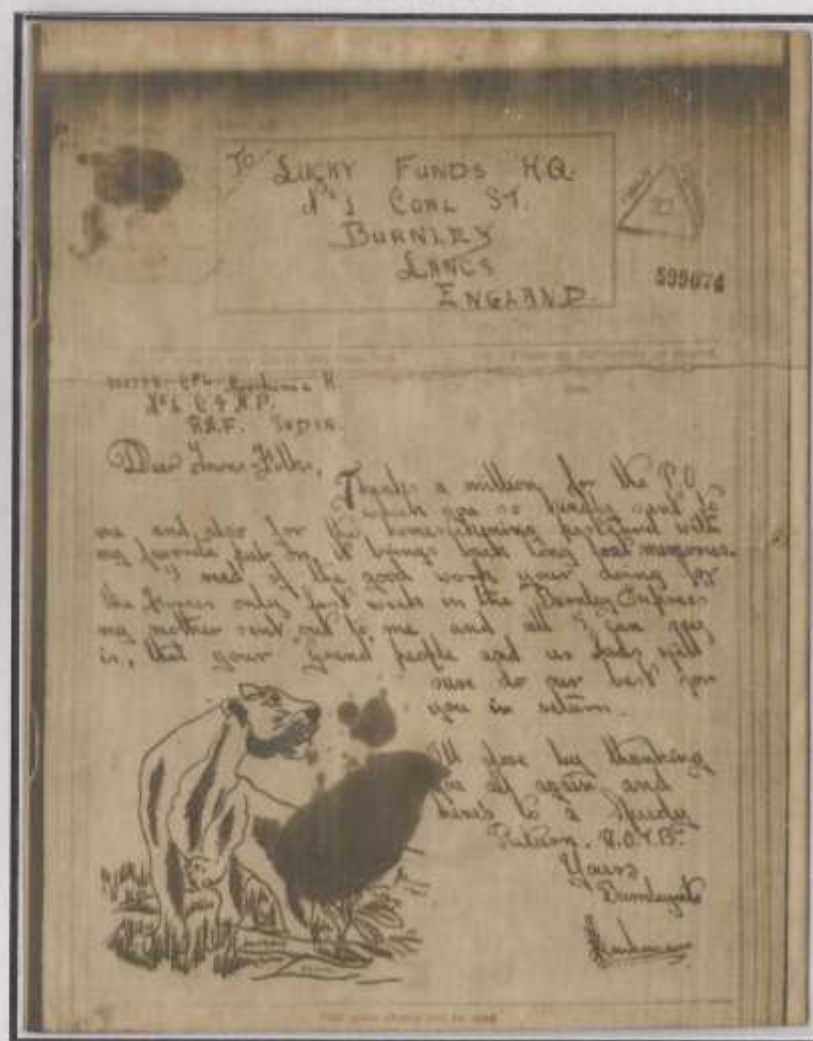 TO LUCKY FUNDS H.Q.
Nº 1 COAL ST.
BURNLEY
LANCS
ENGLAND
599074
R.A.F.
Dear
Thanks a million for the P.O.
which you so kindly sent to
me and also for the postcard with
my favorite pub on, it brings back long lost memories.
I read of the good work your doing for
the forces only last week in the "Burnley Express"
my mother sent out to me and all I can say
is, that your grand people and us lads will
sure do our best for
you in return.
I'll close by thanking
you all again and
here's to a speedy
Return.
Yours